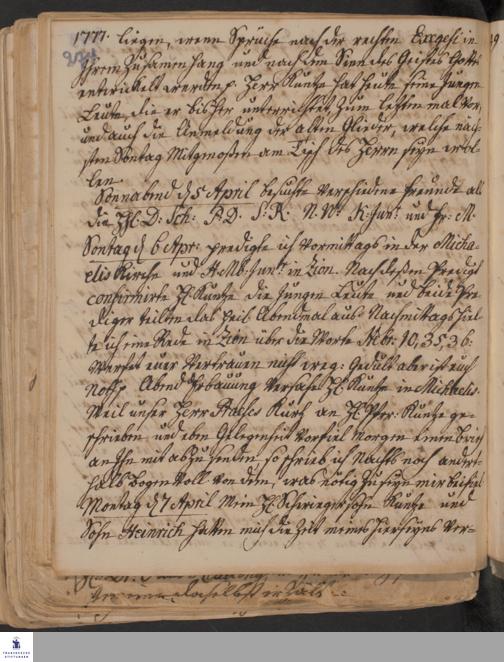 1777. liegen, wenn Sprüche nach der rechten Exegesi in
ihrem Zusamenhang und nach dem Sinn des Geistes Gottes
entwickelt werden p. Herr Kuntze hat heute seine Jungen
Leute, die er bisher unterrichtet zum lesten mal vor,
und auch die Anmeldung der alten Glieder, welche näch-
sten Sontag Mitgenossen am Tisch des Herrn seyn wol-
len.
Sonnabend d 5 April besuchte verschiedene Freunde als
die HH. D: Sch: P. D. S. K. N. N. K. Jun: und Fr: M.
Sontag d 6 Apr: predigte ich Vormittags in der Micha-
elis Kirche und H. Mb. Jun: in Zion. Nach dessen Predigt
confirmirte H. Kuntze die Jungen Leute und beide Pre-
diger teilten das heil. Abendmal aus. Nachmittags hiel-
te ich eine Rede in Zion über die Worte Ebr: 10, 35. 36:
Werfet euer Vertrauen nicht weg: Gedult aber ist euch
Noth p. Abend Erbauung versahe H. Kuntze in Michaelis.
Weil unser Herr kurz an H. Kuntze ge-
schrieben und eben Gelegenheit vorfiel morgen einen Brief
an Ihn mit abzusenden so schrieb ich Nachts noch andert-
halb Bogen voll von dem, was nötig zu seyn mir
Montag d 7 April Mein H. Schwiegersohn Kuntze und
Sohn Heinrich hatten mich die Zeit meines Hierseyns ver-
FRANCKESCHE
STIFTUNGEN